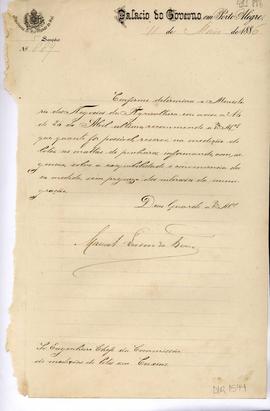 Palacio do Governo, em Porto Alegre,
11 de Maio de 1886
5ª Secção
Nº
Conforme determina o Ministe-
rio dos Negocios da Agricultura em aviso
de 20 de Abril ultimo, recommendo a Vmce
que, quanto fôr possivel, reserve na medição de
lotes as mattas de pinhaes, informando com ur-
gencia sobre a exequibilidade e conveniencia des-
sa medida sem prejuizo dos interesses da immi-
gração.
Deus Guarde a Vmce
Manoel
Sr. Engenheiro Chefe da Commissão
de medição de lotes em Caxias.